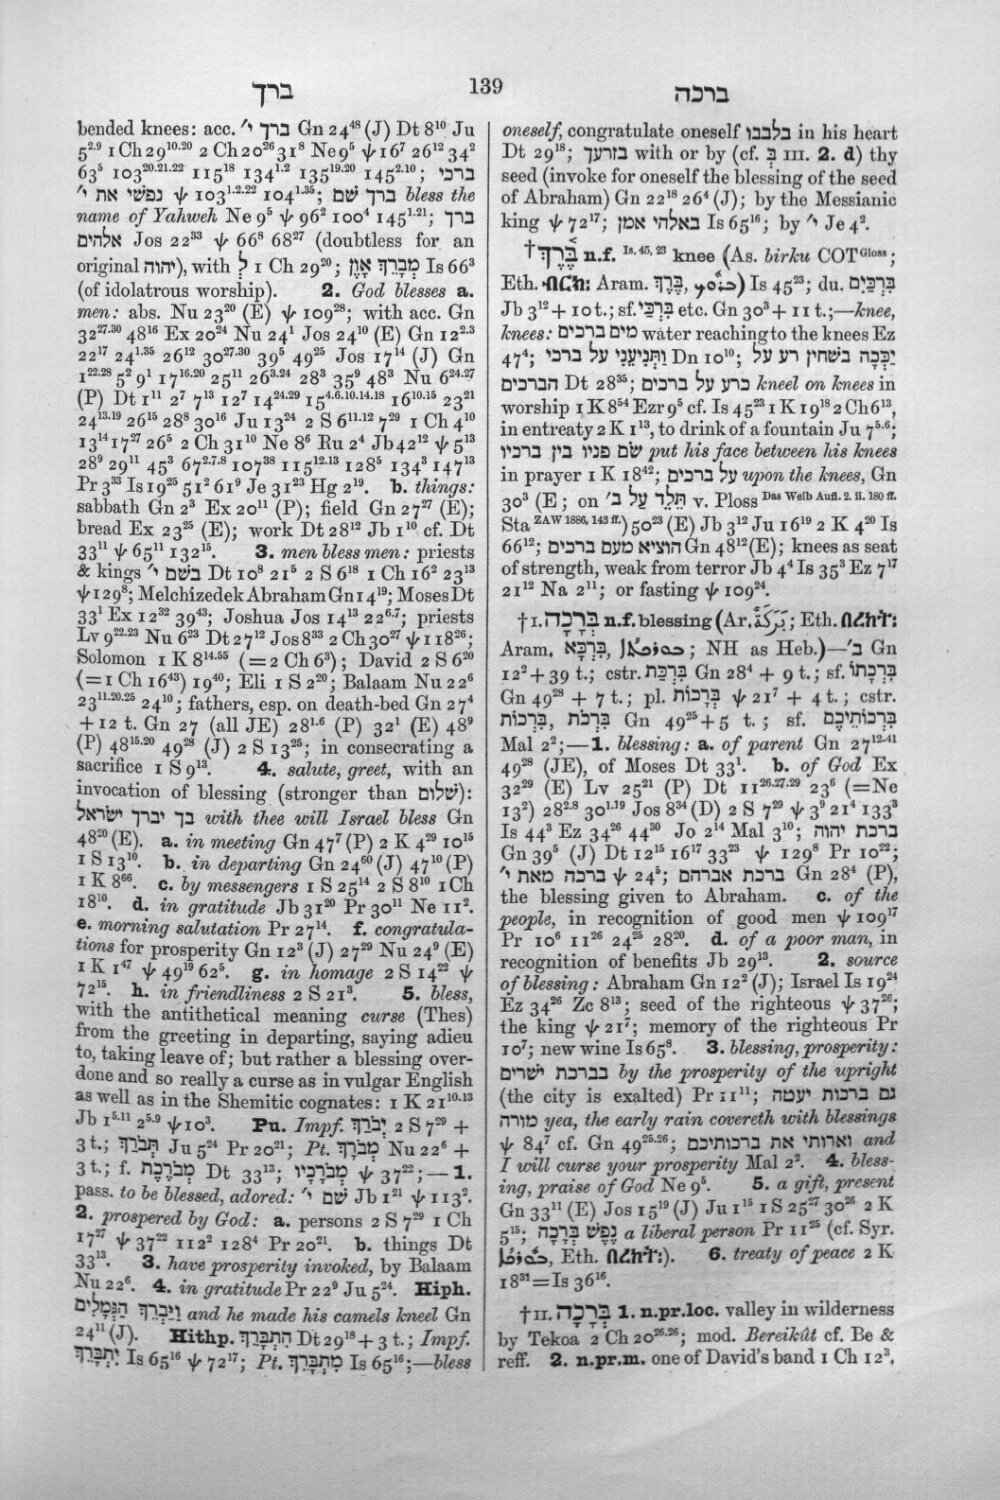 ברך
139
ברכה
bended knees: acc. ברך י׳ Gn 24⁴⁸ (J) Dt 8¹⁰ Ju
5²·⁹ 1 Ch 29¹⁰·²⁰ 2 Ch 20²⁶ 31⁸ Ne 9⁵ ψ 16⁷ 26¹² 34²
63⁵ 103²⁰·²¹·²² 115¹⁸ 134¹·² 135¹⁹·²⁰ 145²·¹⁰; ברכי
נפשי את י׳ ψ 103¹·²·²² 104¹·³⁵; ברך שם bless the
name of Yahweh Ne 9⁵ ψ 96² 100⁴ 145¹·²¹; ברך
אלהים Jos 22³³ ψ 66⁸ 68²⁷ (doubtless for an
original יהוה), with לְ 1 Ch 29²⁰; מְבָרֵךְ אָוֶן Is 66³
(of idolatrous worship). 2. God blesses a.
men: abs. Nu 23²⁰ (E) ψ 109²⁸; with acc. Gn
32²⁷·³⁰ 48¹⁶ Ex 20²⁴ Nu 24¹ Jos 24¹⁰ (E) Gn 12²·³
22¹⁷ 24¹·³⁵ 26¹² 30²⁷·³⁰ 39⁵ 49²⁵ Jos 17¹⁴ (J) Gn
1²²·²⁸ 5² 9¹ 17¹⁶·²⁰ 25¹¹ 26³·²⁴ 28³ 35⁹ 48³ Nu 6²⁴·²⁷
(P) Dt 1¹¹ 2⁷ 7¹³ 12⁷ 14²⁴·²⁹ 15⁴·⁶·¹⁰·¹⁴·¹⁸ 16¹⁰·¹⁵ 23²¹
24¹³·¹⁹ 26¹⁵ 28⁸ 30¹⁶ Ju 13²⁴ 2 S 6¹¹·¹² 7²⁹ 1 Ch 4¹⁰
13¹⁴ 17²⁷ 26⁵ 2 Ch 31¹⁰ Ne 8⁶ Ru 2⁴ Jb 42¹² ψ 5¹³
28⁹ 29¹¹ 45³ 67²·⁷·⁸ 107³⁸ 115¹²·¹³ 128⁵ 134³ 147¹³
Pr 3³³ Is 19²⁵ 51² 61⁹ Je 31²³ Hg 2¹⁹. b. things:
sabbath Gn 2³ Ex 20¹¹ (P); field Gn 27²⁷ (E);
bread Ex 23²⁵ (E); work Dt 28¹² Jb 1¹⁰ cf. Dt
33¹¹ ψ 65¹¹ 132¹⁵. 3. men bless men: priests
& kings בשם י׳ Dt 10⁸ 21⁵ 2 S 6¹⁸ 1 Ch 16² 23¹³
ψ 129⁸; Melchizedek Abraham Gn 14¹⁹; Moses Dt
33¹ Ex 12³² 39⁴³; Joshua Jos 14¹³ 22⁶·⁷; priests
Lv 9²²·²³ Nu 6²³ Dt 27¹² Jos 8³³ 2 Ch 30²⁷ ψ 118²⁶;
Solomon 1 K 8¹⁴·⁵⁵ (=2 Ch 6³); David 2 S 6²⁰
(=1 Ch 16⁴³) 19⁴⁰; Eli 1 S 2²⁰; Balaam Nu 22⁶
23¹¹·²⁰·²⁵ 24¹⁰; fathers, esp. on death-bed Gn 27⁴
+ 12 t. Gn 27 (all JE) 28¹·⁶ (P) 32¹ (E) 48⁹
(P) 48¹⁵·²⁰ 49²⁸ (J) 2 S 13²⁵; in consecrating a
sacrifice 1 S 9¹³. 4. salute, greet, with an
invocation of blessing (stronger than שלום):
בך יברך ישראל with thee will Israel bless Gn
48²⁰ (E). a. in meeting Gn 47⁷ (P) 2 K 4²⁹ 10¹⁵
1 S 13¹⁰. b. in departing Gn 24⁶⁰ (J) 47¹⁰ (P)
1 K 8⁶⁶. c. by messengers 1 S 25¹⁴ 2 S 8¹⁰ 1 Ch
18¹⁰. d. in gratitude Jb 31²⁰ Pr 30¹¹ Ne 11².
e. morning salutation Pr 27¹⁴. f. congratula-
tions for prosperity Gn 12³ (J) 27²⁹ Nu 24⁹ (E)
1 K 1⁴⁷ ψ 49¹⁹ 62⁵. g. in homage 2 S 14²² ψ
72¹⁵. h. in friendliness 2 S 21³. 5. bless,
with the antithetical meaning curse (Thes)
from the greeting in departing, saying adieu
to, taking leave of; but rather a blessing over-
done and so really a curse as in vulgar English
as well as in the Shemitic cognates: 1 K 21¹⁰·¹³
Jb 1⁵·¹¹ 2⁵·⁹ ψ 10³. Pu. Impf. יְבֹרַךְ 2 S 7²⁹ +
3 t.; תְּבֹרַךְ Ju 5²⁴ Pr 20²¹; Pt. מְבֹרָךְ Nu 22⁶ +
3 t.; f. מְבֹרֶכֶת Dt 33¹³; מְבֹרָכָיו ψ 37²²;—1.
pass. to be blessed, adored: שם י׳ Jb 1²¹ ψ 113².
2. prospered by God: a. persons 2 S 7²⁹ 1 Ch
17²⁷ ψ 37²² 112² 128⁴ Pr 20²¹. b. things Dt
33¹³. 3. have prosperity invoked, by Balaam
Nu 22⁶. 4. in gratitude Pr 22⁹ Ju 5²⁴. Hiph.
וַיַּבְרֵךְ הַגְּמַלִּים and he made his camels kneel Gn
24¹¹ (J). Hithp. הִתְבָּרֵךְ Dt 29¹⁸ + 3 t.; Impf.
יִתְבָּרֵךְ Is 65¹⁶ ψ 72¹⁷; Pt. מִתְבָּרֵךְ Is 65¹⁶;—bless
oneself, congratulate oneself בלבבו in his heart
Dt 29¹⁸; בזרעך with or by (cf. בְּ III. 2. d) thy
seed (invoke for oneself the blessing of the seed
of Abraham) Gn 22¹⁸ 26⁴ (J); by the Messianic
king ψ 72¹⁷; באלהי אמן Is 65¹⁶; by י׳ Je 4².
†בֶּרֶךְ n.f. Is. 45, 23 knee (As. birku COT Gloss;
Eth. ብርክ: Aram. בֶּרֶךְ,) Is 45²³; du. בִּרְכַּיִם
Jb 3¹² + 10 t.; sf. בִּרְכַּי etc. Gn 30³ + 11 t.;—knee,
knees: מים ברכים water reaching to the knees Ez
47⁴; וַתְּנִיעֵנִי על ברכי Dn 10¹⁰; יַכְּכָה בשחין רע על
הברכים Dt 28³⁵; כרע על ברכים kneel on knees in
worship 1 K 8⁵⁴ Ezr 9⁵ cf. Is 45²³ 1 K 19¹⁸ 2 Ch 6¹³,
in entreaty 2 K 1¹³, to drink of a fountain Ju 7⁵·⁶;
שם פניו בין ברכיו put his face between his knees
in prayer 1 K 18⁴²; על ברכים upon the knees, Gn
30³ (E; on תֵּלֵד עַל ב׳ v. Ploss Das Weib Aufl. 2. ii. 180 ff.
Sta ZAW 1886, 143 ff.) 50²³ (E) Jb 3¹² Ju 16¹⁹ 2 K 4²⁰ Is
66¹²; הוציא מעם ברכים Gn 48¹² (E); knees as seat
of strength, weak from terror Jb 4⁴ Is 35³ Ez 7¹⁷
21¹² Na 2¹¹; or fasting ψ 109²⁴.
†I. בְּרָכָה n.f. blessing (Ar. بَرَكَةٌ; Eth. በረከት:
Aram. בִּרְכָא, ; NH as Heb.)—ב׳ Gn
12² + 39 t.; cstr. בִּרְכַּת Gn 28⁴ + 9 t.; sf. בִּרְכָתוֹ
Gn 49²⁸ + 7 t.; pl. בְּרָכוֹת ψ 21⁷ + 4 t.; cstr.
בִּרְכוֹת, בִּרְכֹת Gn 49²⁵ + 5 t.; sf. בִּרְכוֹתֵיכֶם
Mal 2²;—1. blessing: a. of parent Gn 27¹²·⁴¹
49²⁸ (JE), of Moses Dt 33¹. b. of God Ex
32²⁹ (E) Lv 25²¹ (P) Dt 11²⁶·²⁷·²⁹ 23⁶ (=Ne
13²) 28²·⁸ 30¹·¹⁹ Jos 8³⁴ (D) 2 S 7²⁹ ψ 3⁹ 21⁴ 133³
Is 44³ Ez 34²⁶ 44³⁰ Jo 2¹⁴ Mal 3¹⁰; ברכת יהוה
Gn 39⁵ (J) Dt 12¹⁵ 16¹⁷ 33²³ ψ 129⁸ Pr 10²²;
ברכה מאת י׳ ψ 24⁵; ברכת אברהם Gn 28⁴ (P),
the blessing given to Abraham. c. of the
people, in recognition of good men ψ 109¹⁷
Pr 10⁶ 11²⁶ 24²⁵ 28²⁰. d. of a poor man, in
recognition of benefits Jb 29¹³. 2. source
of blessing: Abraham Gn 12² (J); Israel Is 19²⁴
Ez 34²⁶ Zc 8¹³; seed of the righteous ψ 37²⁶;
the king ψ 21⁷; memory of the righteous Pr
10⁷; new wine Is 65⁸. 3. blessing, prosperity:
בברכת ישרים by the prosperity of the upright
(the city is exalted) Pr 11¹¹; גם ברכות יעטה
מורה yea, the early rain covereth with blessings
ψ 84⁷ cf. Gn 49²⁵·²⁶; וארותי את ברכותיכם and
I will curse your prosperity Mal 2². 4. bless-
ing, praise of God Ne 9⁵. 5. a gift, present
Gn 33¹¹ (E) Jos 15¹⁹ (J) Ju 1¹⁵ 1 S 25²⁷ 30²⁶ 2 K
5¹⁵; נֶפֶשׁ בְּרָכָה a liberal person Pr 11²⁵ (cf. Syr.
Eth. በረከት:). 6. treaty of peace 2 K
18³¹=Is 36¹⁶.
†II. בְּרָכָה 1. n.pr.loc. valley in wilderness
by Tekoa 2 Ch 20²⁶·²⁶; mod. Bereikût cf. Be &
reff. 2. n.pr.m. one of David's band 1 Ch 12³.